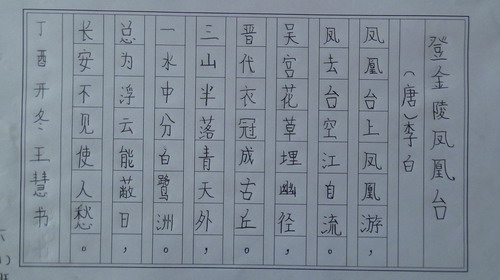 登金陵凤凰台
（唐）李白
凤凰台上凤凰游，
凤去台空江自流。
吴宫花草埋幽径，
晋代衣冠成古丘。
三山半落青天外，
一水中分白鹭洲。
总为浮云能蔽日，
长安不见使人愁。
丁酉开冬王慧书